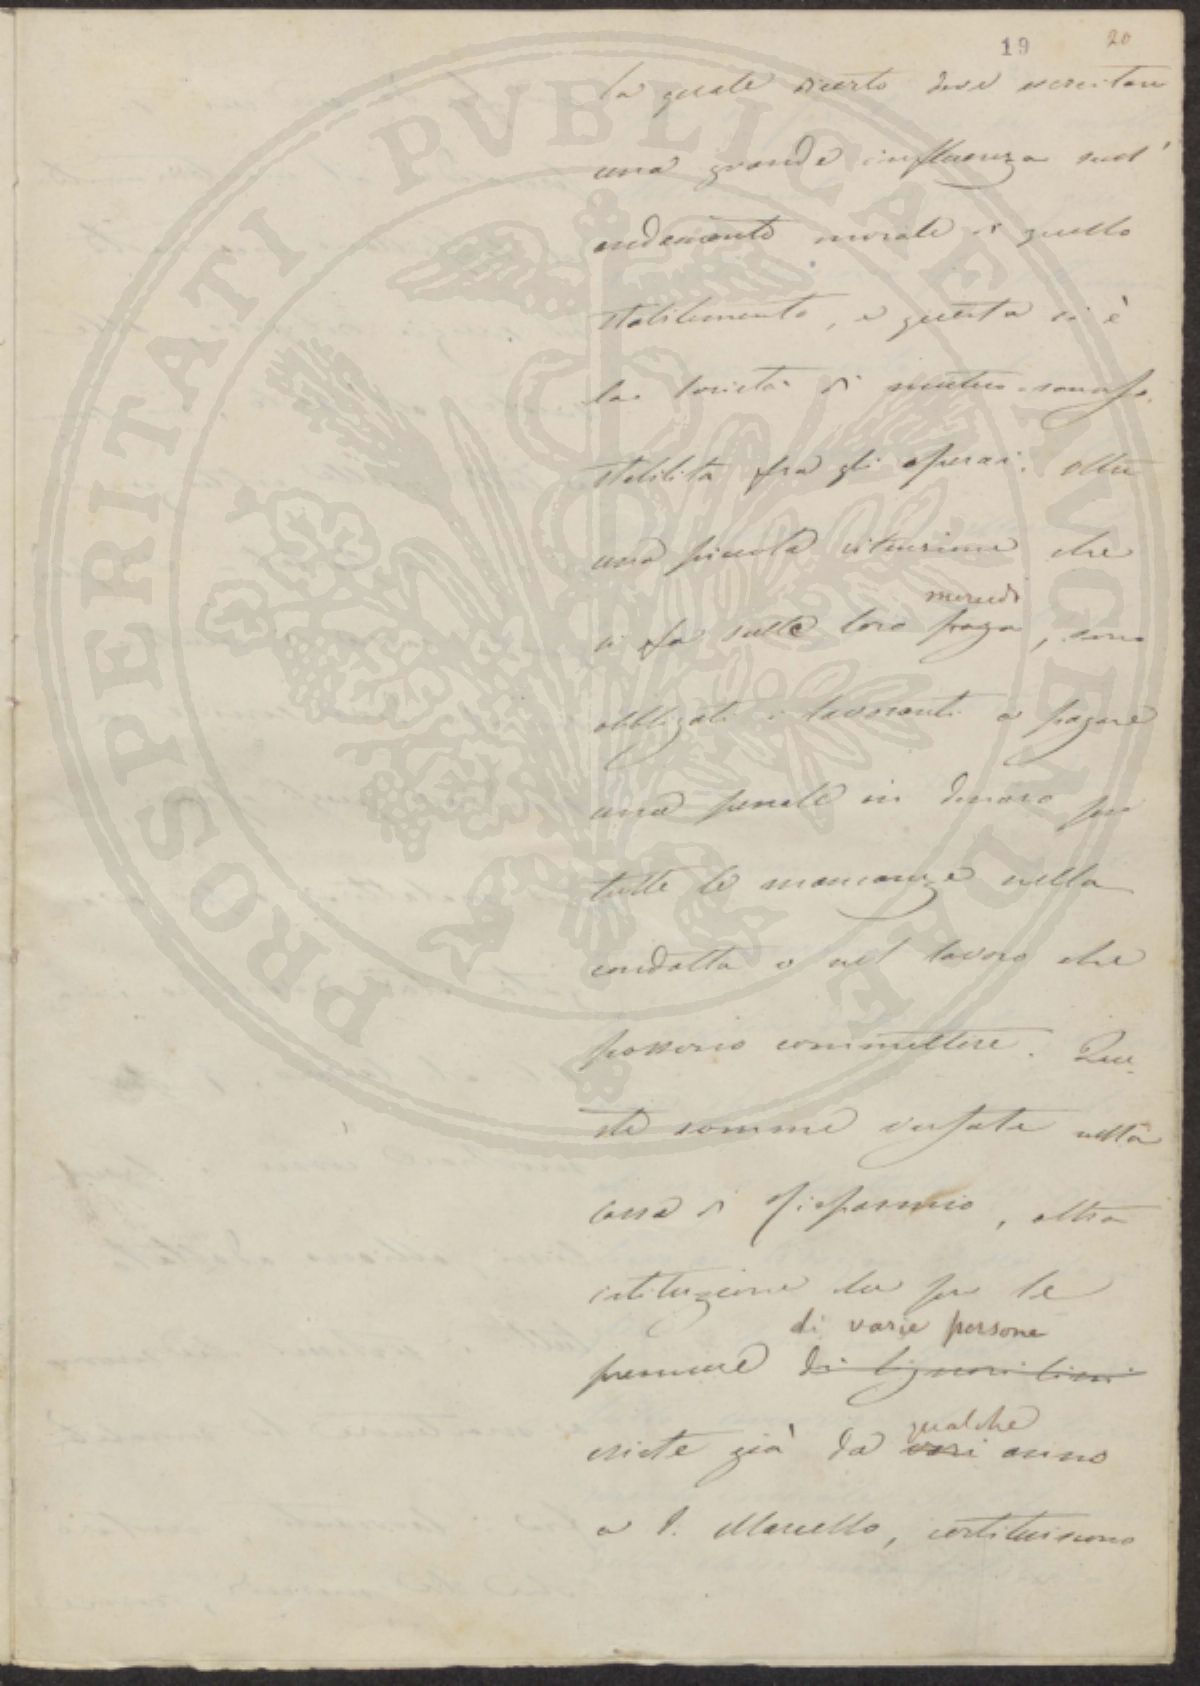 19 20
la quale di certo deve esercitare
una grande influenza sull'
andamento morale di quello
stabilimento, e questa si è
la Società di mutuo-soccorso
stabilita fra gli operai. Oltre
una piccola ritenzione che
mercedi
si fa sulle loro paga, sono
obbligati i lavoranti a pagare
una penale in denaro per
tutte le mancanze nella
condotta o nel lavoro che
possono commettere. Que-
ste somme versate nella
Cassa di Risparmio, altra
istituzione che per le
di varie persone
premure di Signori Cini
esiste già da
qualche
vari anno
a S. Marcello, costituiscono
PROSPERITATI PVBLICAE AVGENDAE